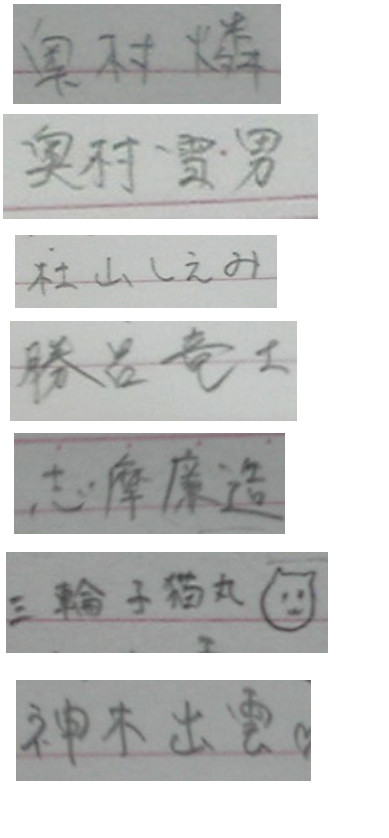 奥村 燐
奥村 雪男
杜山しえみ
勝呂竜士
志摩廉造
三輪子猫丸
神木出雲♡